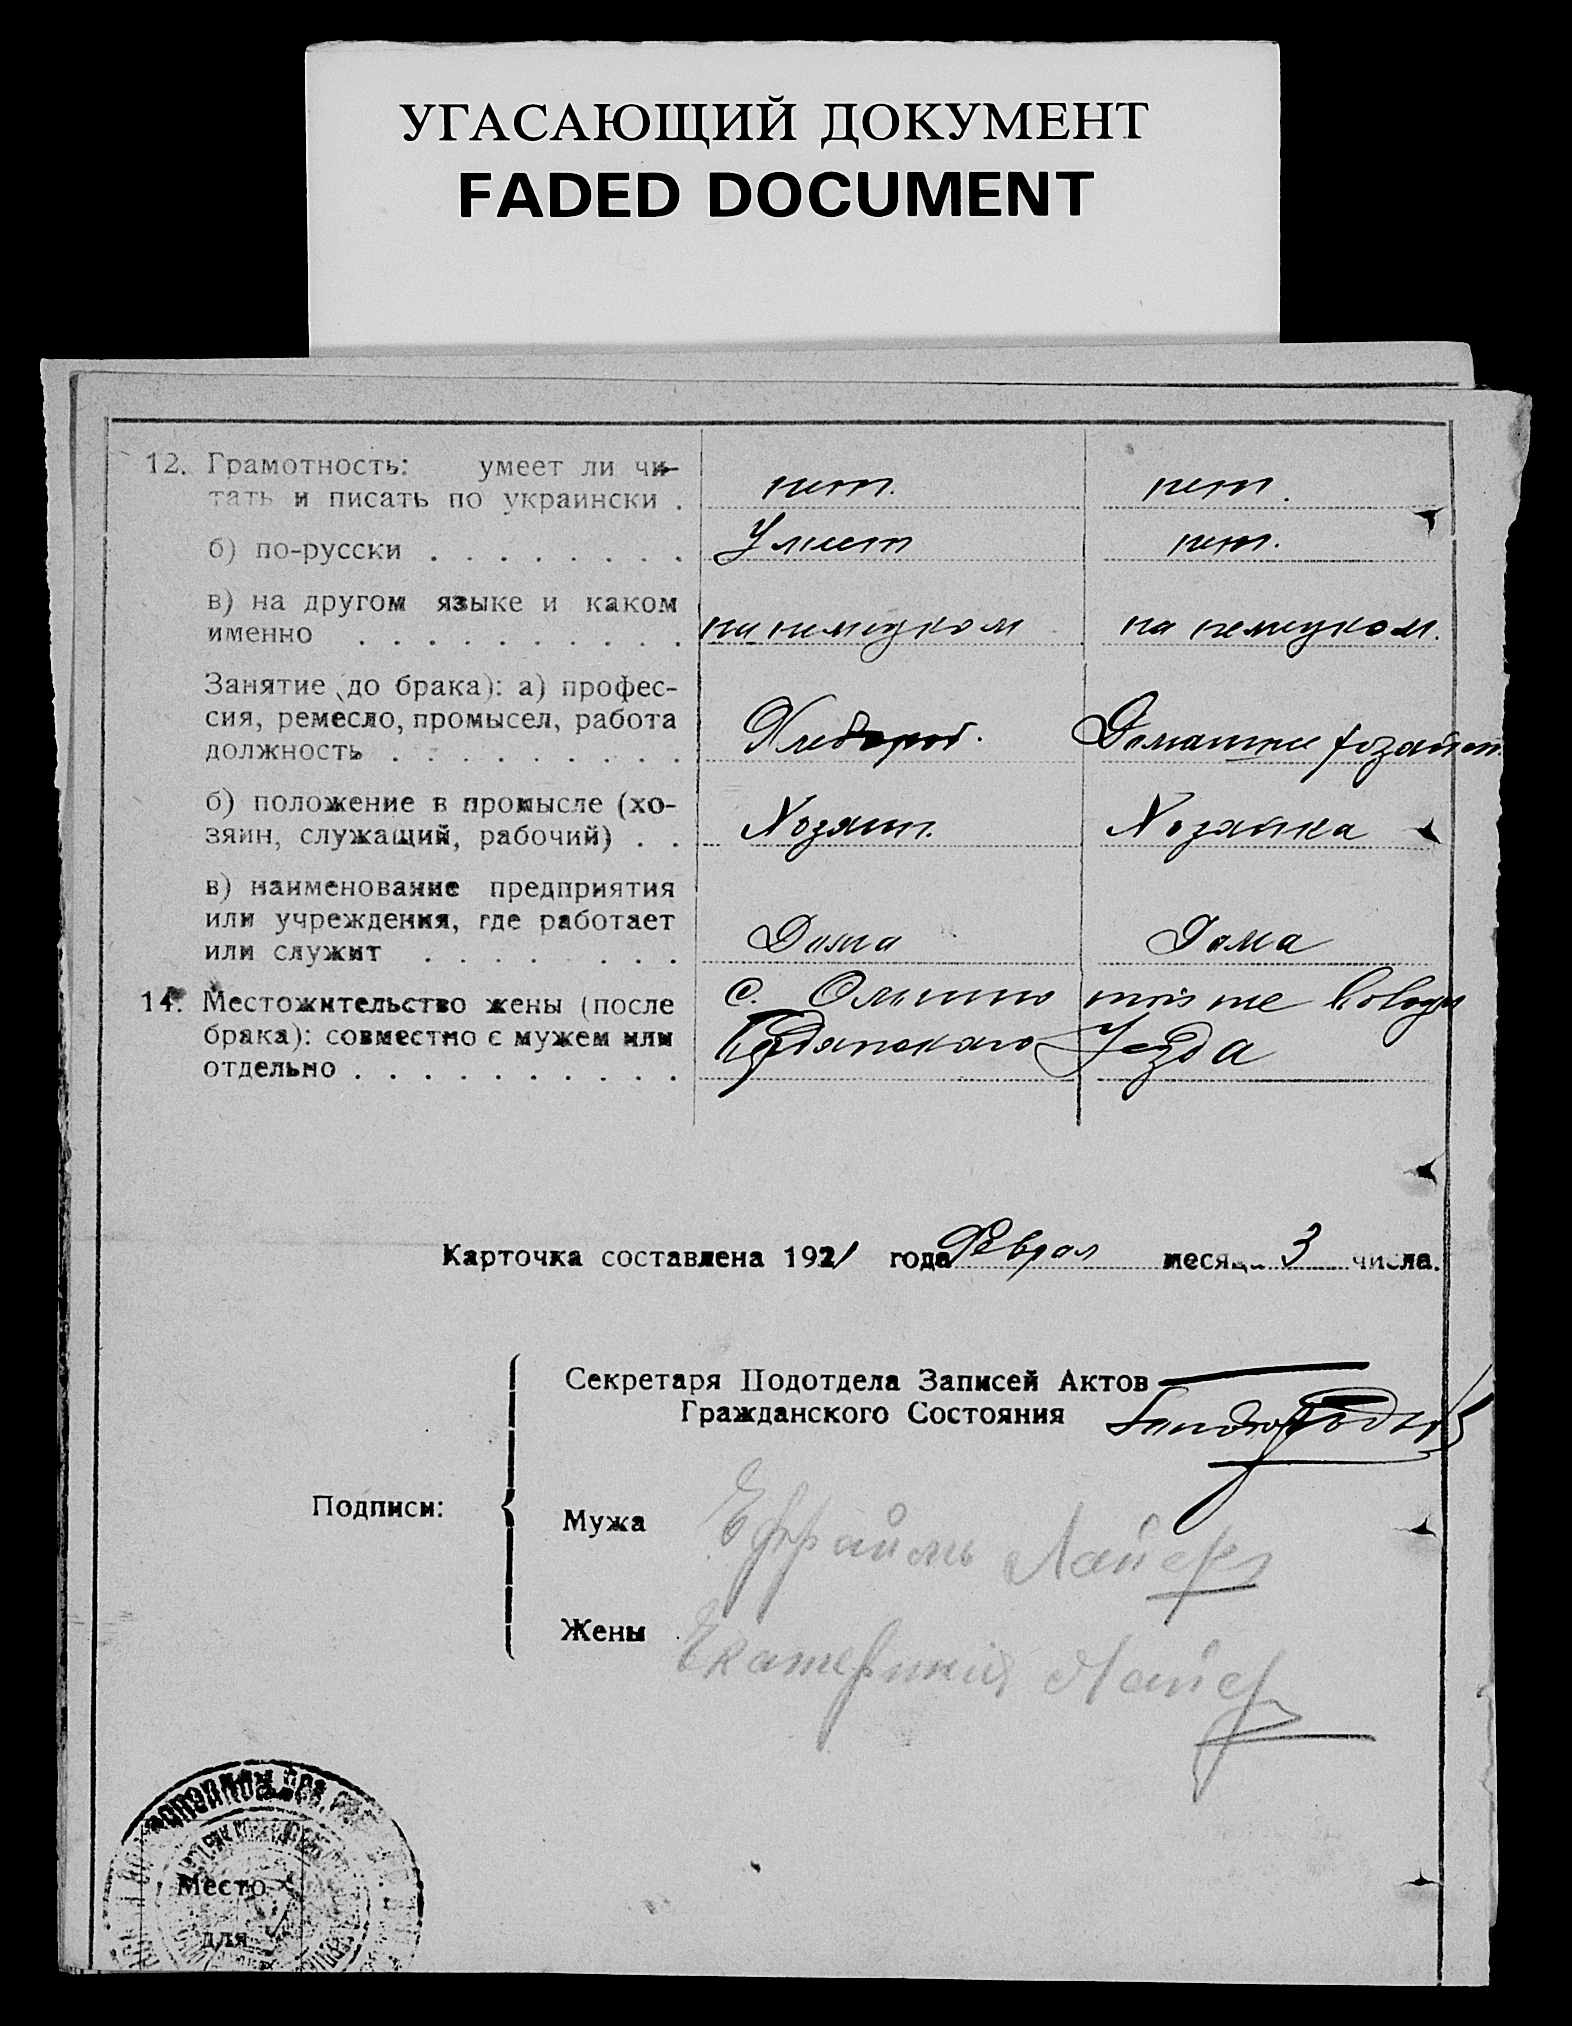 УГАСАЮЩИЙ ДОКУМЕНТ
FADED DOCUMENT
12. Грамотность: умеет ли чи-
тать и писать по украински . нет. нет.
б) по-русски . . . . . . . . Умеет нет.
в) на другом языке и каком
именно . . . . . . . . . . на немецком на немецком.
Занятие (до брака): а) профес-
сия, ремесло, промысел, работа
должность . . . . . . . . . Хлебороб. Домашнее
б) положение в промысле (хо-
зяин, служащий, рабочий) . . Хозяин. Хозяйка
в) наименование предприятия
или учреждения, где работает
или служит . . . . . . . Дома Дома
14. Местожительство жены (после с.
брака): совместно с мужем или Бердянскаго Уезда
отдельно . . . . . . . . . .
Карточка составлена 1921 года Феврал месяца 3 числа.
Секретаря Подотдела Записей Актов
Гражданского Состояния
Подписи:
Мужа Ефраимъ Лайер
Жены Екатериния Лайер
Место
для